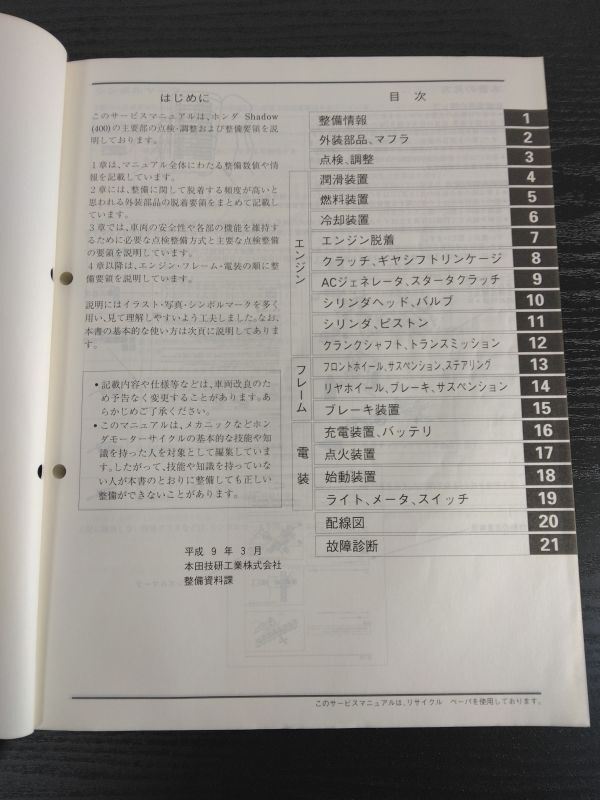 はじめに
このサービスマニュアルは、ホンダ Shadow
(400)の主要部の点検・調整および整備要領を説
明しております。
1章は、マニュアル全体にわたる整備数値や情
報を記載しています。
2章には、整備に関して脱着する頻度が高いと
思われる外装部品の脱着要領をまとめて記載し
ています。
3章では、車両の安全性や各部の機能を維持す
るために必要な点検整備方式と主要な点検整備
の要領を説明しています。
4章以降は、エンジン・フレーム・電装の順に整
備要領を説明しています。
説明にはイラスト・写真・シンボルマークを多く
用い、見て理解しやすいよう工夫しました。なお、
本書の基本的な使い方は次頁に説明してありま
す。
•記載内容や仕様等などは、車両改良のた
め予告なく変更することがあります。あ
らかじめご了承ください。
•このマニュアルは、メカニックなどホン
ダモーターサイクルの基本的な技能や知
識を持った人を対象として編集していま
す。したがって、技能や知識を持っていな
い人が本書のとおりに整備しても正しい
整備ができないことがあります。
平成 9 年 3 月
本田技研工業株式会社
整備資料課
目 次
整備情報 1
外装部品、マフラ 2
点検、調整 3
エンジン
潤滑装置 4
燃料装置 5
冷却装置 6
エンジン脱着 7
クラッチ、ギヤシフトリンケージ 8
ACジェネレータ、スタータクラッチ 9
シリンダヘッド、バルブ 10
シリンダ、ピストン 11
クランクシャフト、トランスミッション 12
フレーム
フロントホイール、サスペンション、ステアリング 13
リヤホイール、ブレーキ、サスペンション 14
ブレーキ装置 15
電装
充電装置、バッテリ 16
点火装置 17
始動装置 18
ライト、メータ、スイッチ 19
配線図 20
故障診断 21
このサービスマニュアルは、リサイクル ペーパを使用しております。